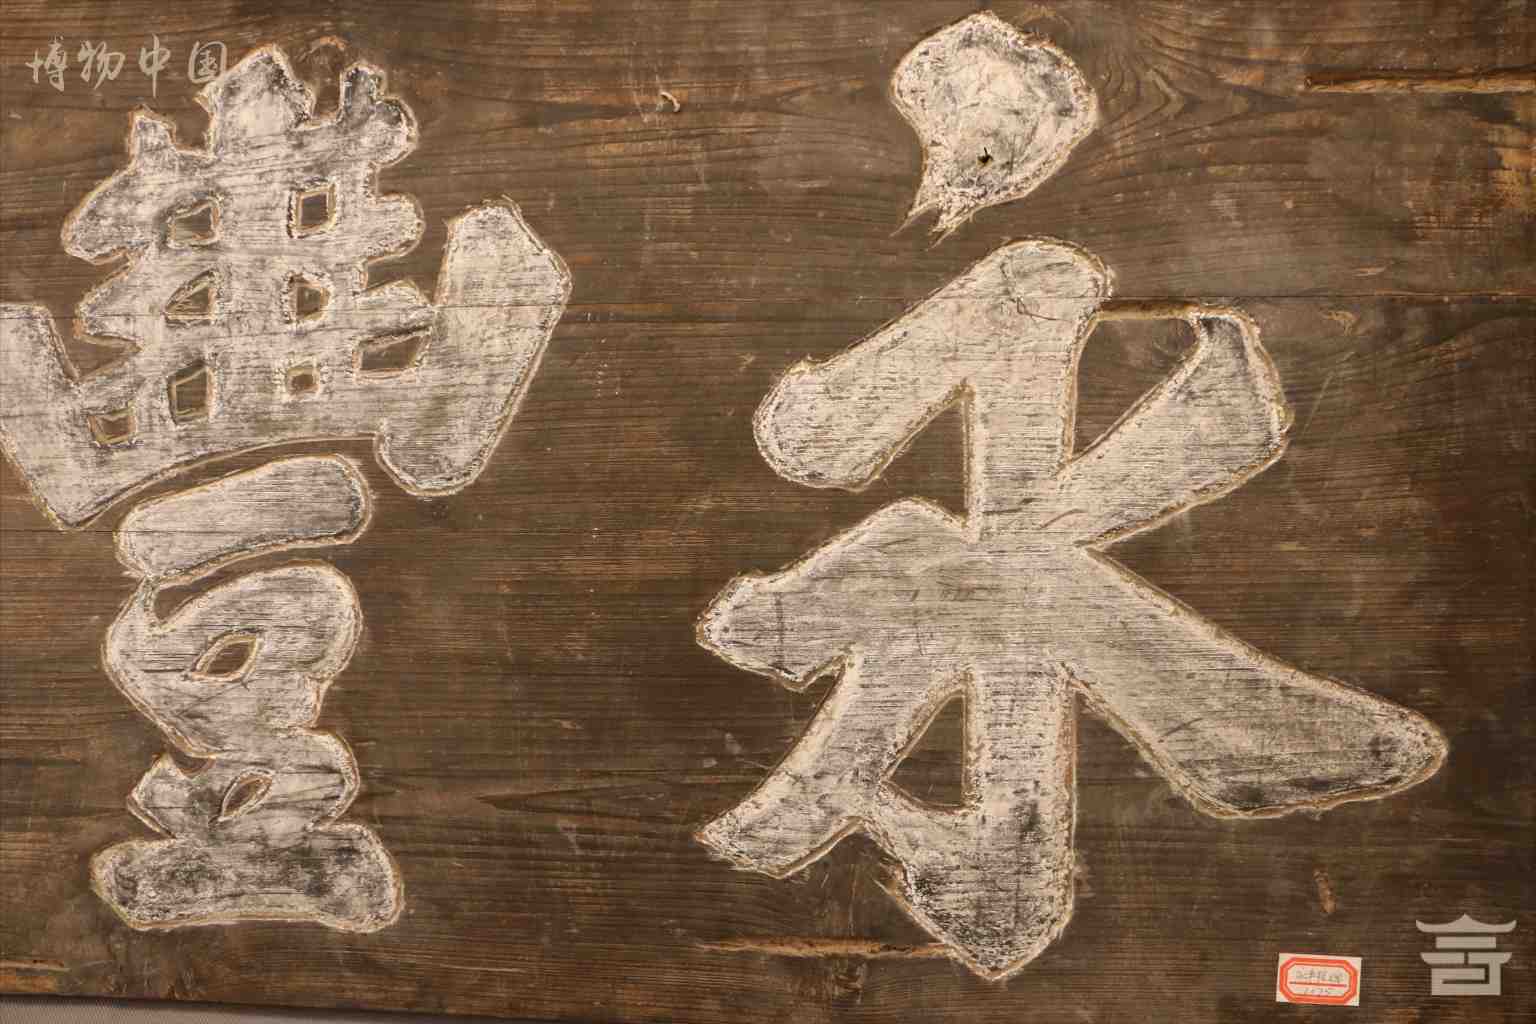 博物中国
永豐
1075